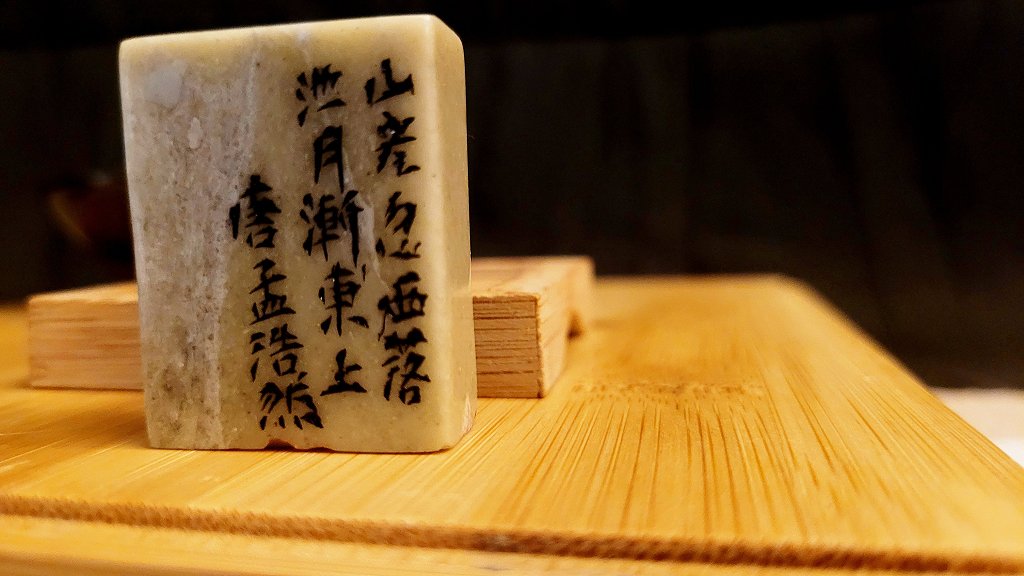 山產忽西落
池月漸東上
唐孟浩然